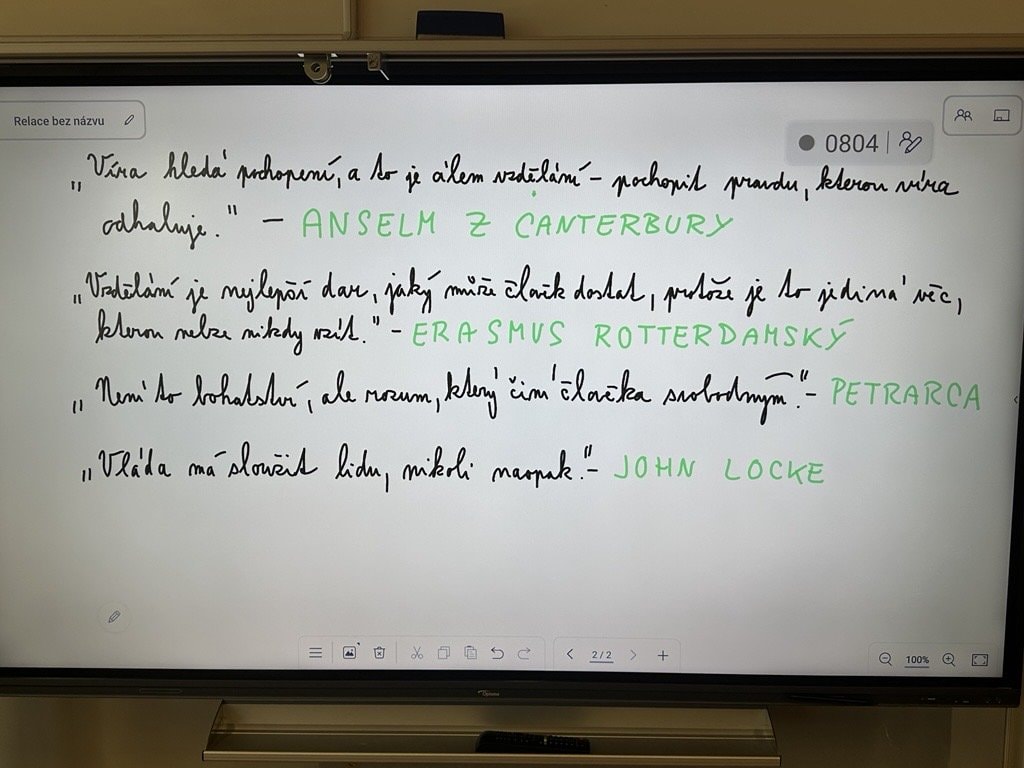 Relace bez názvu
0804
„Víra hledá pochopení, a to je cílem vzdělání – pochopit pravdu, kterou víra
odhaluje." – ANSELM Z CANTERBURY
„Vzdělání je nejlepší dar, jaký může člověk dostat, protože je to jediná věc,
kterou nelze nikdy vzít." – ERASMUS ROTTERDAMSKÝ
„Není to bohatství, ale rozum, který činí člověka svobodným." – PETRARCA
„Vláda má sloužit lidu, nikoli naopak." – JOHN LOCKE
2/2
100%
Optoma